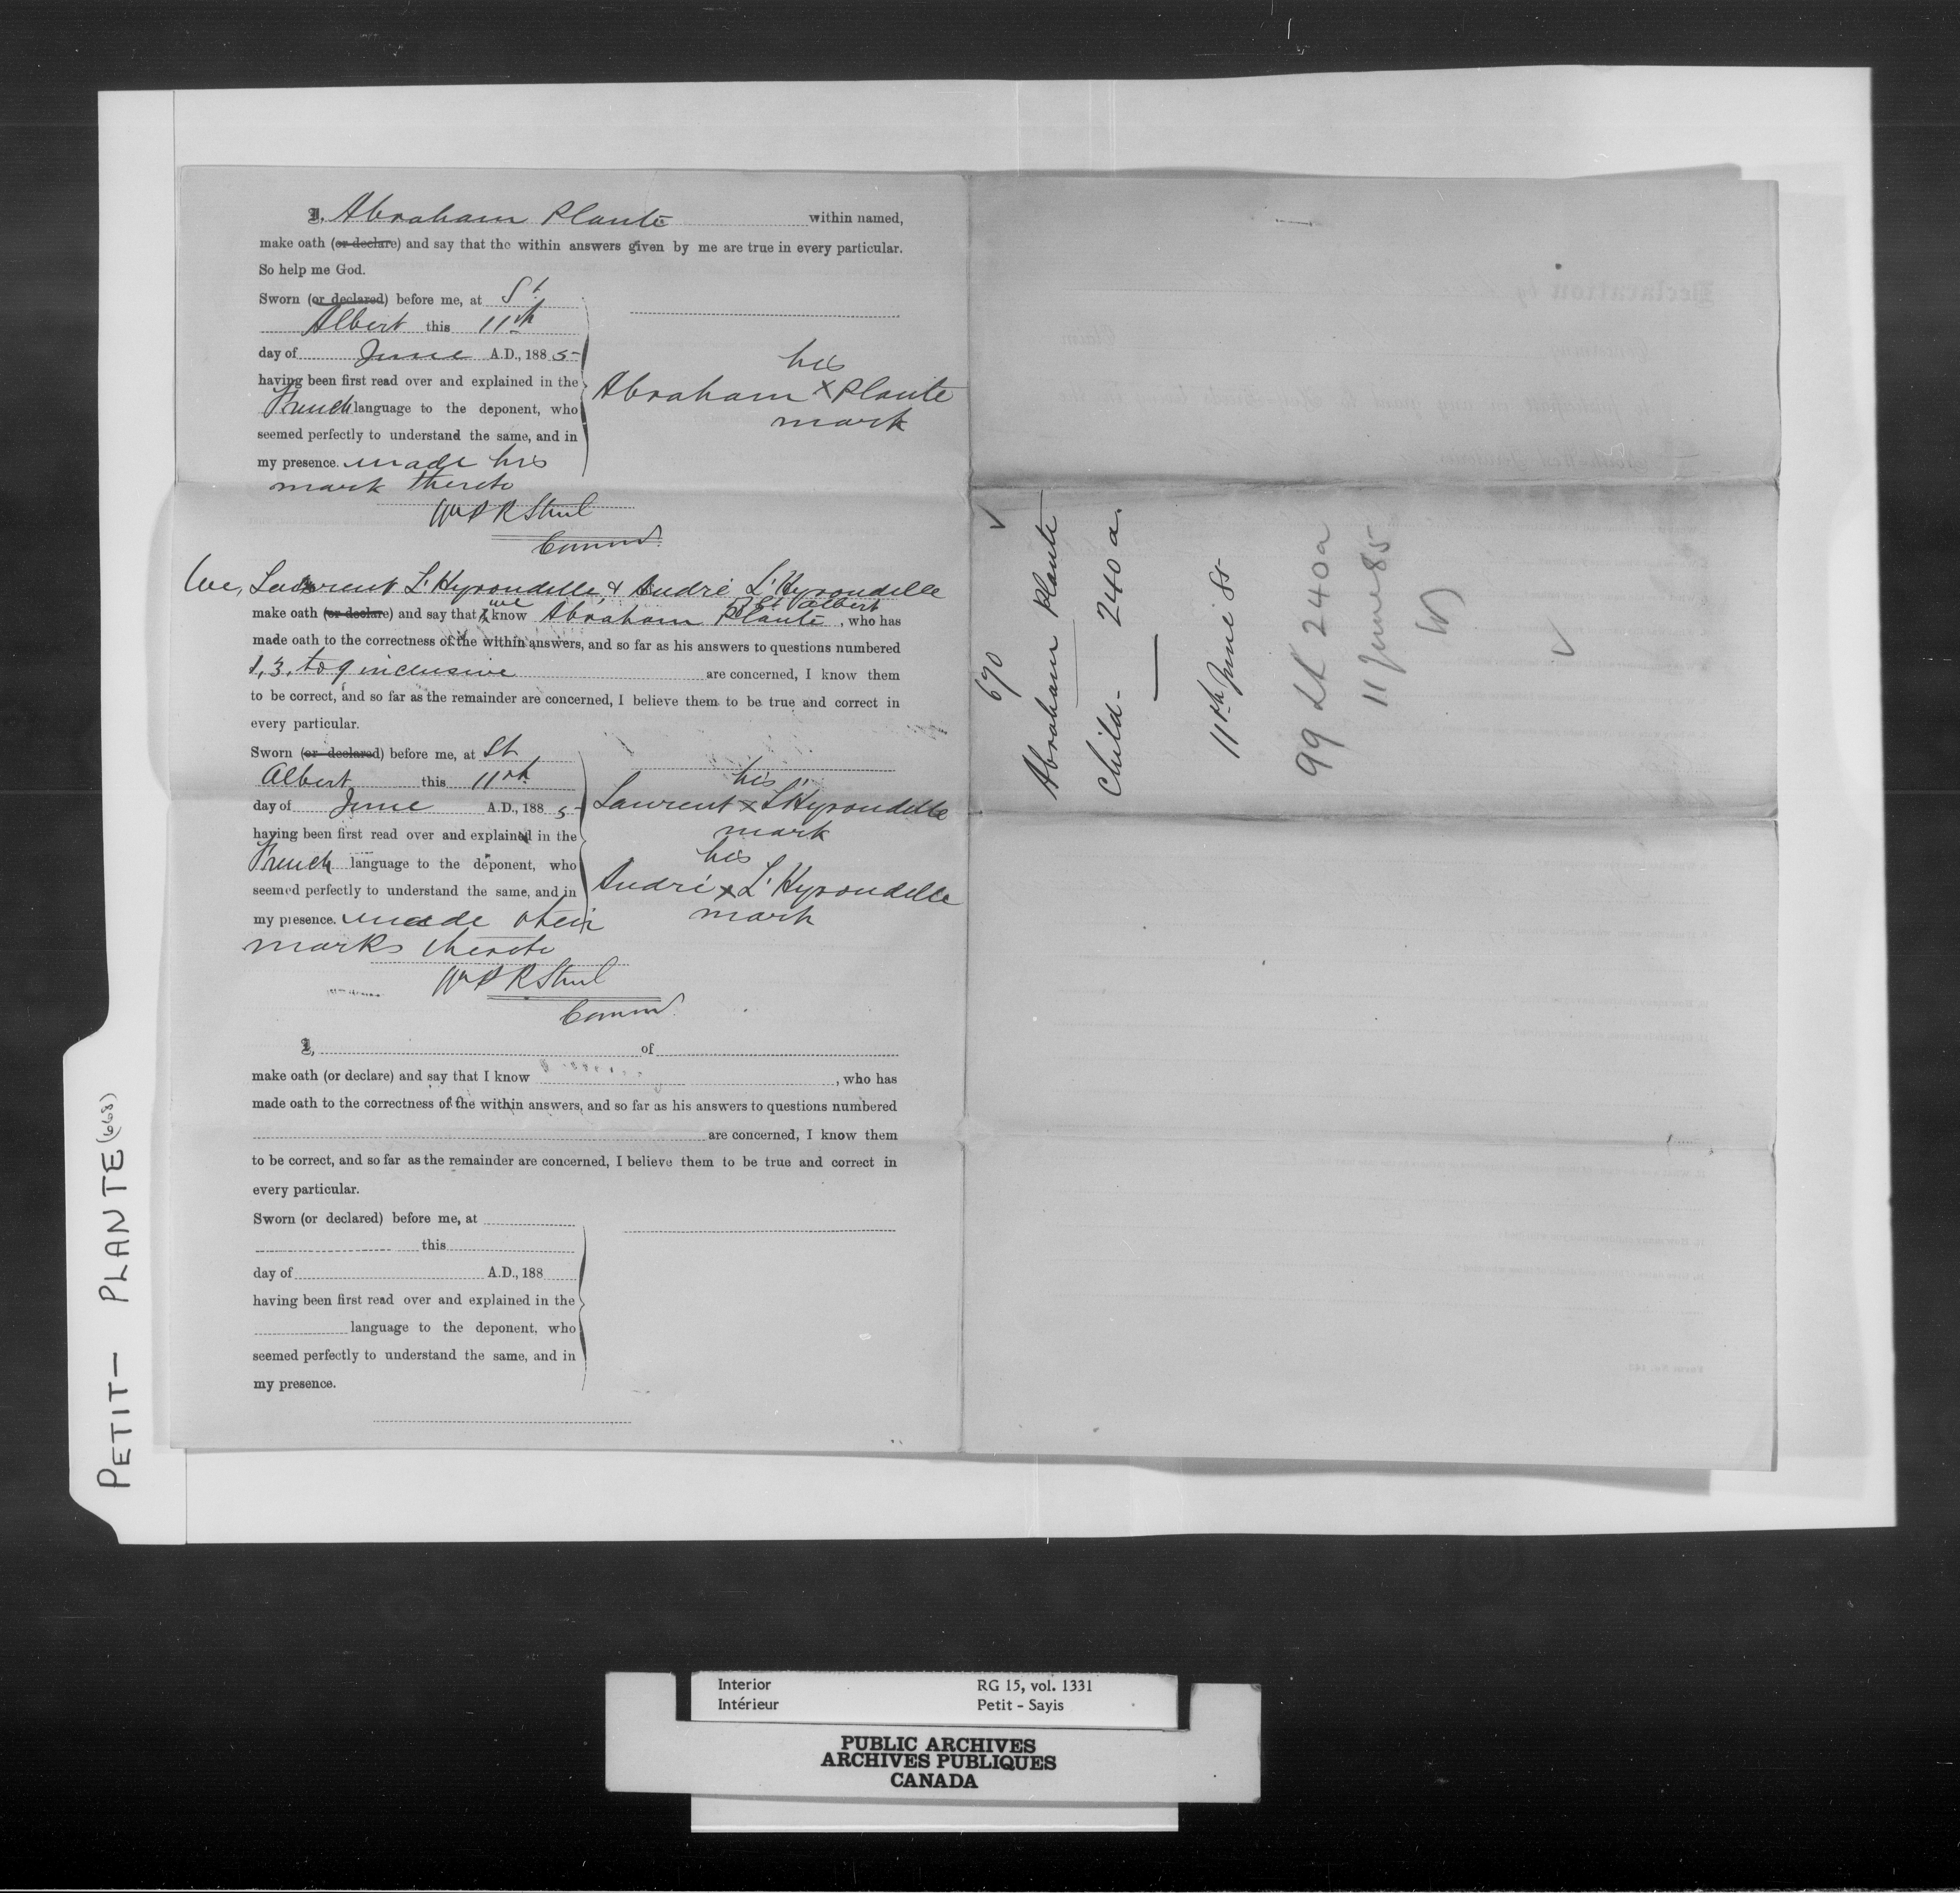 I, Abraham Plante within named,
make oath (or declare) and say that the within answers given by me are true in every particular.
So help me God.
Sworn (or declared) before me, at St
Albert this 11th
day of June A.D., 1885
having been first read over and explained in the
French language to the deponent, who
seemed perfectly to understand the same, and in
my presence. made his
mark thereto
his
Abraham x Plante
mark
Commr.
We, Laurent L'Hyrondelle, & André L'Hyrondelle
of St Albert
make oath (or declare) and say that we know Abraham Plante, who has
made oath to the correctness of the within answers, and so far as his answers to questions numbered
1, 3, to 9 inclusive are concerned, I know them
to be correct, and so far as the remainder are concerned, I believe them to be true and correct in
every particular.
Sworn (or declared) before me, at St
Albert this 11th
day of June A.D., 1885
having been first read over and explained in the
French language to the deponent, who
seemed perfectly to understand the same, and in
my presence. made their
marks thereto
his
Laurent x L'Hyrondelle
mark
his
André x L'Hyrondelle
mark
Commr.
I, of
make oath (or declare) and say that I know , who has
made oath to the correctness of the within answers, and so far as his answers to questions numbered
are concerned, I know them
to be correct, and so far as the remainder are concerned, I believe them to be true and correct in
every particular.
Sworn (or declared) before me, at
this
day of A.D., 188
having been first read over and explained in the
language to the deponent, who
seemed perfectly to understand the same, and in
my presence.
670
Abraham Plante
Child - 240 a.
11th June 85
99 Lt 240a
11 June 85
PETIT - PLANTE (668)
Interior RG 15, vol. 1331
Intérieur Petit - Sayis
PUBLIC ARCHIVES
ARCHIVES PUBLIQUES
CANADA